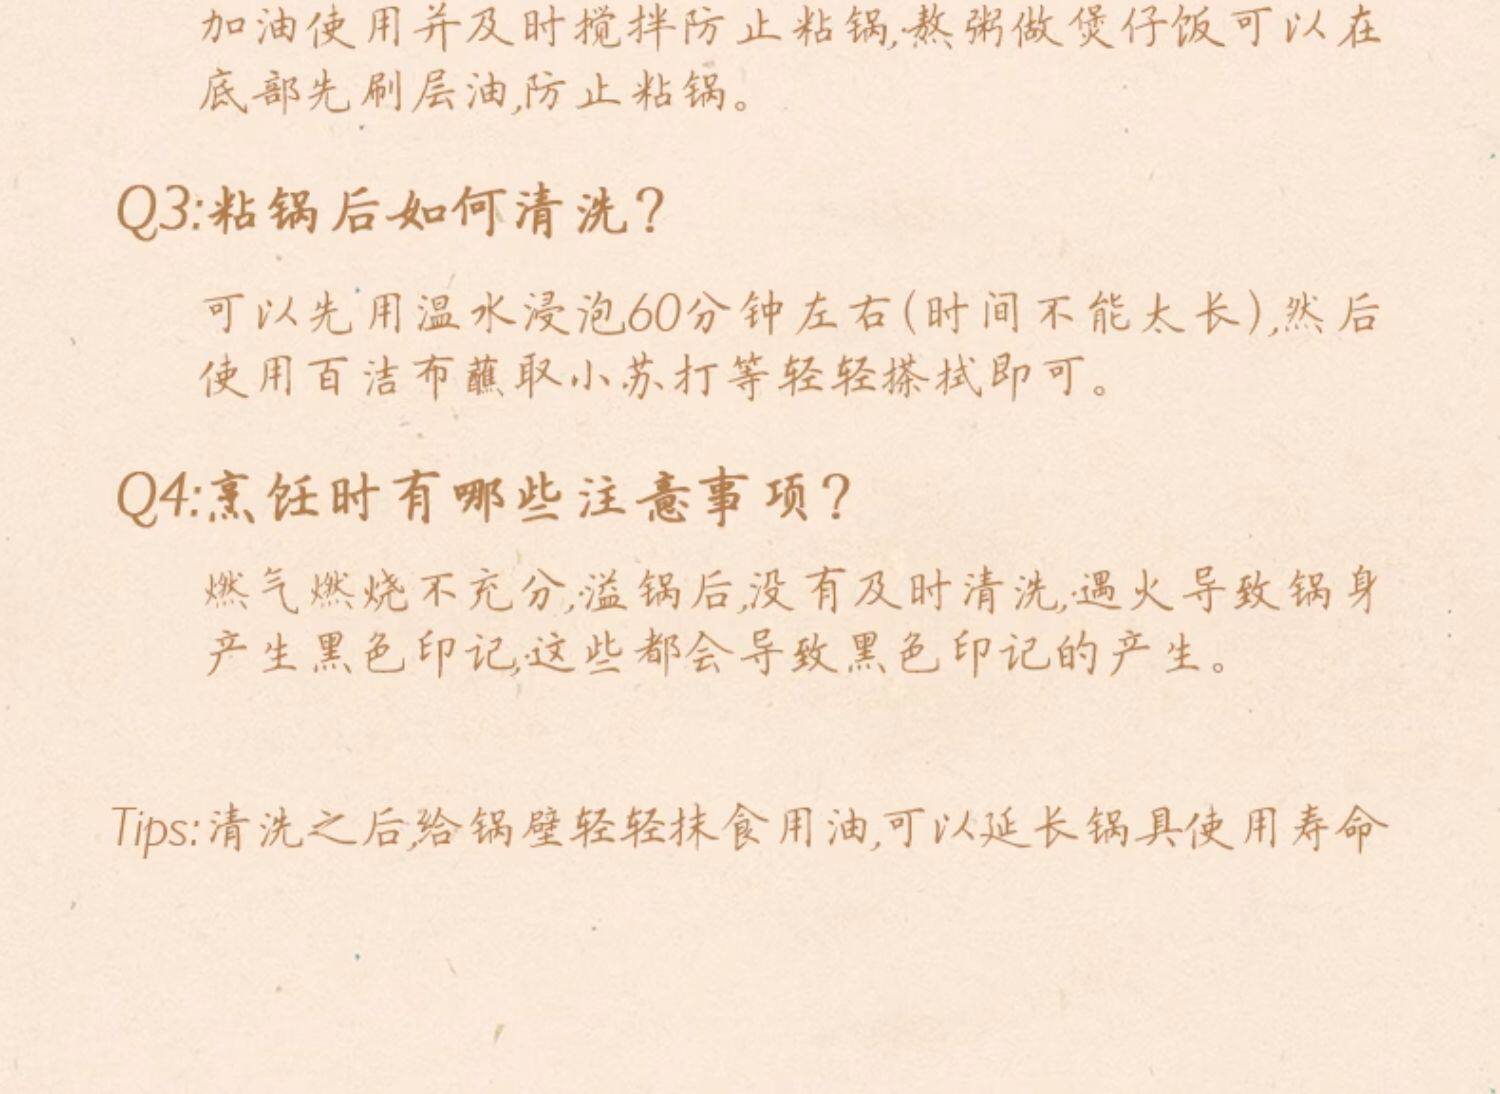 加油使用并及时搅拌防止粘锅,熬粥做煲仔饭可以在
底部先刷层油,防止粘锅。
Q3:粘锅后如何清洗?
可以先用温水浸泡60分钟左右(时间不能太长),然后
使用百洁布蘸取小苏打等轻轻搽拭即可。
Q4:烹饪时有哪些注意事项?
燃气燃烧不充分,溢锅后,没有及时清洗,遇火导致锅身
产生黑色印记,这些都会导致黑色印记的产生。
Tips:清洗之后,给锅壁轻轻抹食用油,可以延长锅具使用寿命